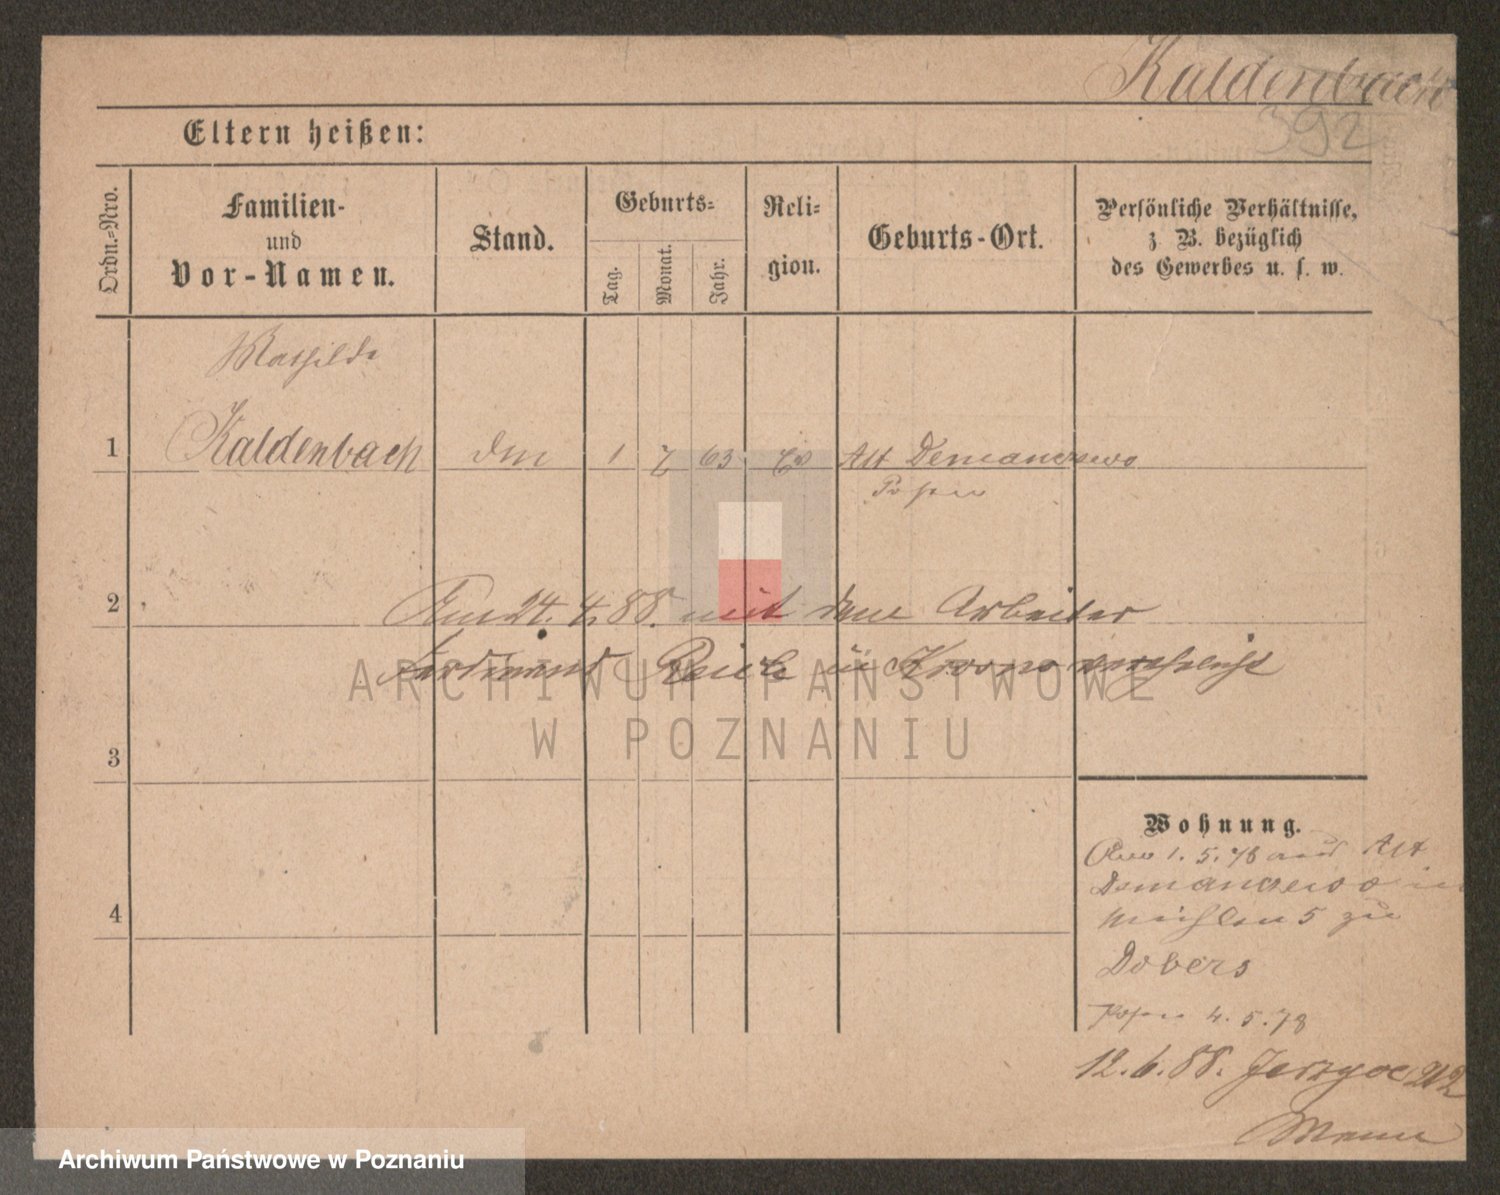 Kaldenbach
392
Eltern heißen:
Ordn.-Nro.
Familien-
und
Vor-Namen.
Stand.
Geburts-
Tag.
Monat.
Jahr.
Reli-
gion.
Geburts-Ort.
Persönliche Verhältnisse,
z. B. bezüglich
des Gewerbes u. s. w.
Mathilde
1 Kaldenbach 1 7 63 Ev Alt Demanczewo
Posen
2 24. 4. 88. mit dem Arbeiter
Ferdinand in verehelicht
3
Wohnung.
1. 5. 78 aus Alt
Demanczewo in
5 zu
Dobers
Posen 4. 5. 78
4
12. 6. 88.
ARCHIWUM PAŃSTWOWE
W POZNANIU
Archiwum Państwowe w Poznaniu